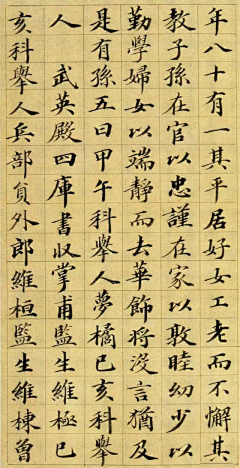 年八十有一其平居好女工老而不懈其
教子孫在官以忠謹在家以敦睦幼少以
勤學婦女以端靜而去華飾將沒言猶及
是有孫五曰甲午科舉人夢橘已亥科舉
人　武英殿四庫書收掌甫監生維極已
亥科舉人兵部員外郎維桓監生維棟曾